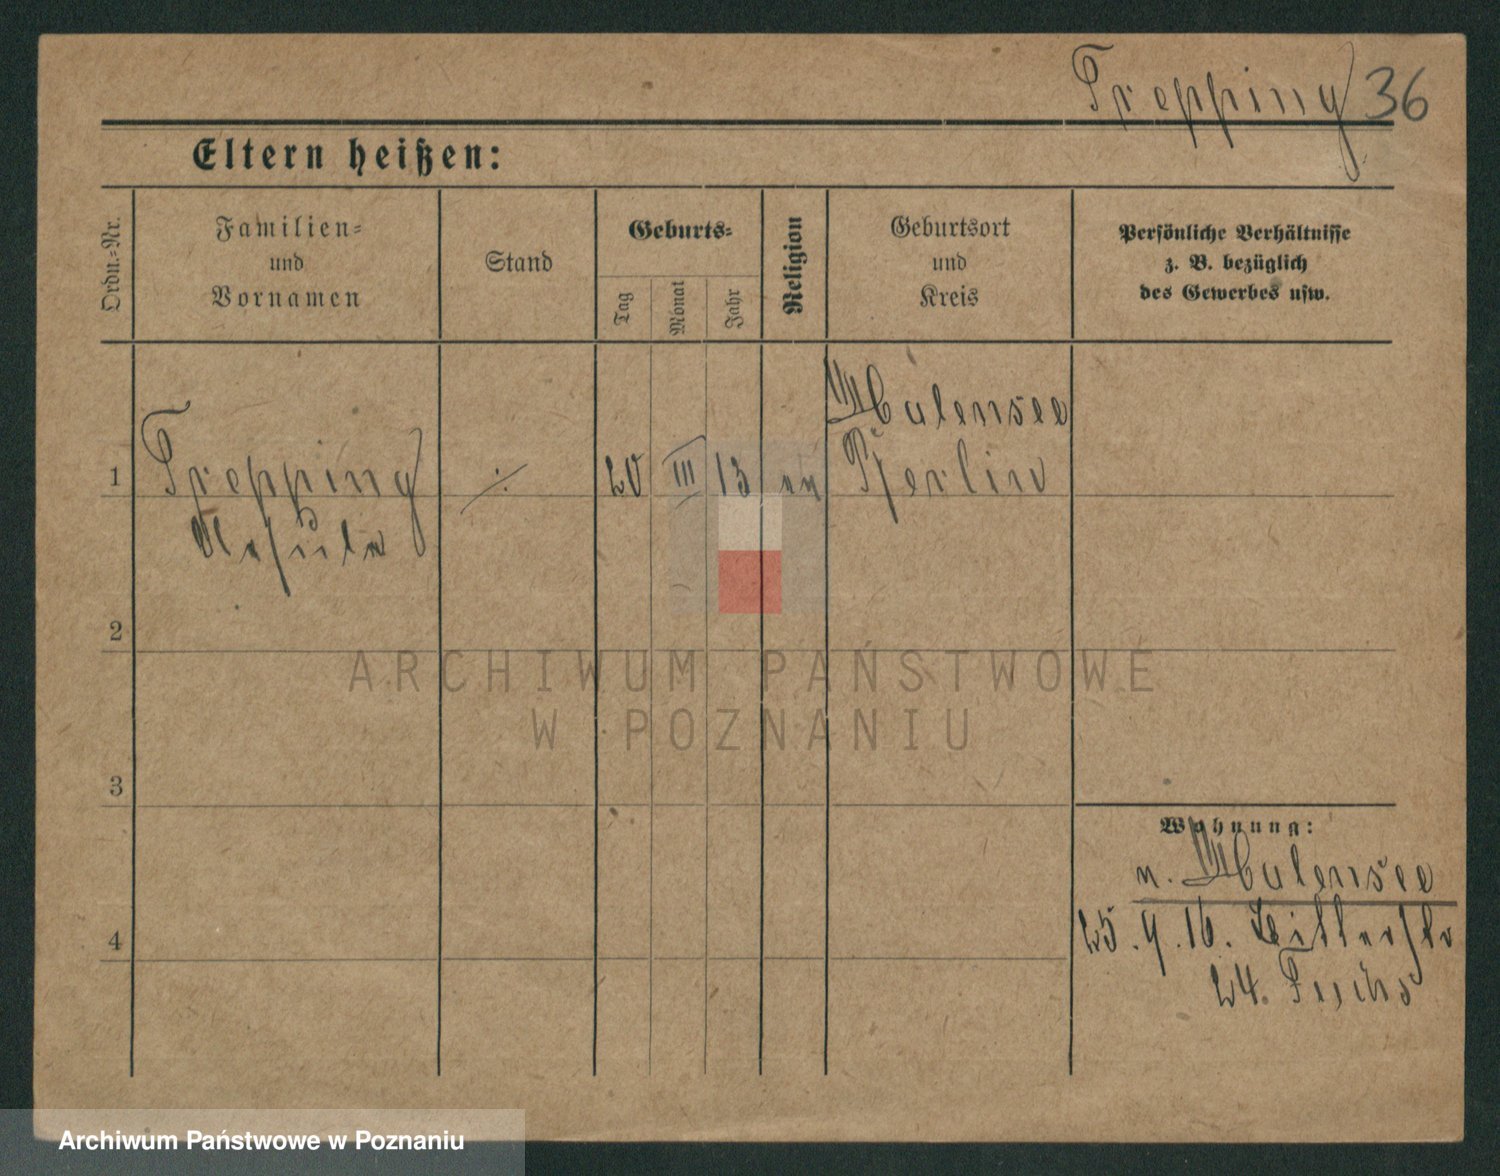 Trepping 36
Eltern heißen:
Ordn.-Nr.
Familien-
und
Vornamen
Stand
Geburts-
Tag
Monat
Jahr
Religion
Geburtsort
und
Kreis
Persönliche Verhältnisse
z. B. bezüglich
des Gewerbes usw.
1
Trepping
Ursula
./.
20
III
13
Halensee
Berlin
2
3
4
Wohnung:
n. Halensee
25.9.16.
24. Fuchs
ARCHIWUM PAŃSTWOWE
W POZNANIU
Archiwum Państwowe w Poznaniu